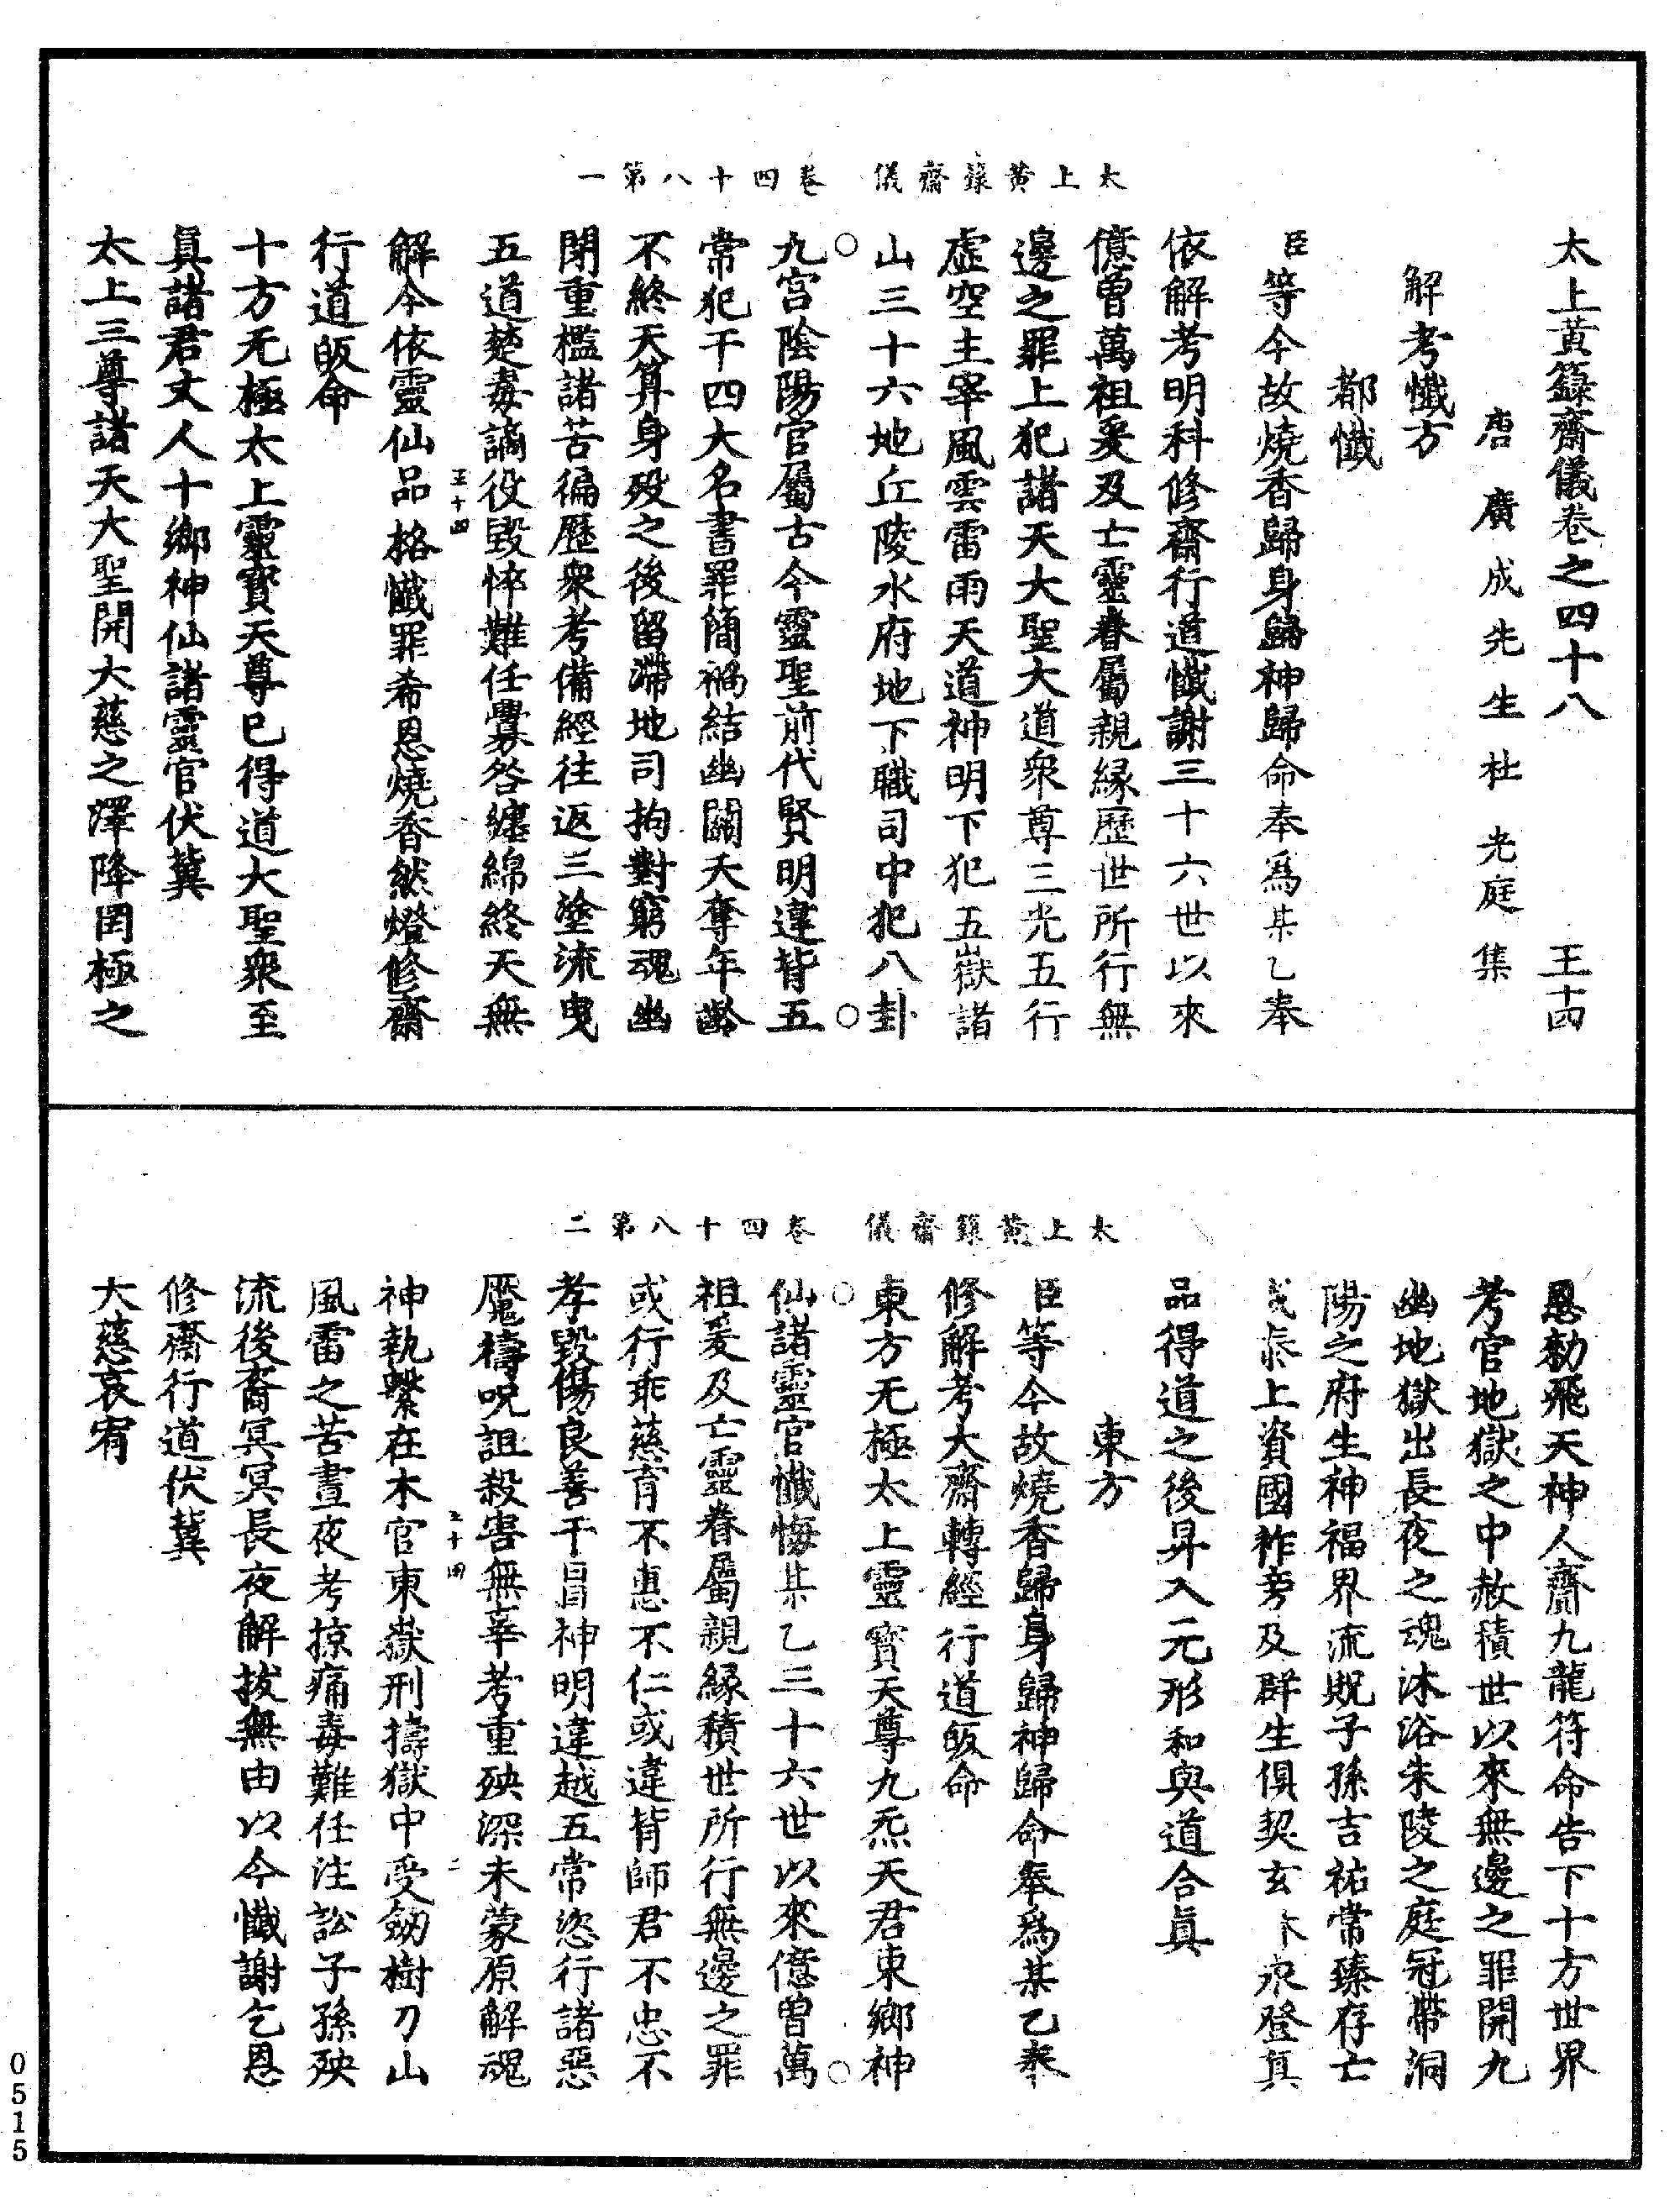 太上黃籙齋儀 卷四十八第一
太上黃籙齋儀卷之四十八 王十四
唐廣成先生杜光庭集
解考懺方
都懺
臣等今故燒香歸身歸神歸命奉為某乙奉
依解考明科修齋行道懺謝三十六世以來
億曾萬祖爰及亡靈眷屬親緣歷世所行無
邊之罪上犯諸天大聖大道眾尊三光五行
虛空主宰風雲雷雨天道神明下犯五嶽諸
山三十六地丘陵水府地下職司中犯八卦
九宮陰陽官屬古今靈聖前代賢明違背五
常犯干四大名書罪簡禍結幽關夭奪年齡
不終天算身歿之後留滯地司拘對窮魂幽
閉重檻諸苦徧歷眾考備經往返三塗流曳
五道楚毒謫役毀悴難任釁咎纏綿終天無
王十四
解今依靈仙品格懺罪希恩燒香然燈修齋
行道皈命
十方无極太上靈寶天尊已得道大聖眾至
真諸君丈人十鄉神仙諸靈官伏冀
太上三尊諸天大聖開大慈之澤降罔極之
太上黃籙齋儀 卷四十八第二
恩勑飛天神人齎九龍符命告下十方世界
考官地獄之中赦積世以來無邊之罪開九
幽地獄出長夜之魂沐浴朱陵之庭冠帶洞
陽之府生神福界流貺子孫吉祐常臻存亡
咸泰上資國祚旁及群生俱契玄 永登真
品得道之後昇入无形和與道合真
東方
臣等今故燒香歸身歸神歸命奉為某乙奉
修解考大齋轉經行道皈命
東方无極太上靈寶天尊九炁天君東鄉神
仙諸靈官懺悔某乙三十六世以來億曾萬
祖爰及亡靈眷屬親緣積世所行無邊之罪
或行乖慈育不惠不仁或違背師君不忠不
孝毀傷良善干冒神明違越五常恣行諸惡
魘禱呪詛殺害無辜考重殃深未蒙原解魂
王十四 二
神執繫在木官東嶽刑擣獄中受劒樹刀山
風雷之苦晝夜考掠痛毒難任注訟子孫殃
流後裔冥冥長夜解拔無由以今懺謝乞恩
修齋行道伏冀
大慈哀宥
0515